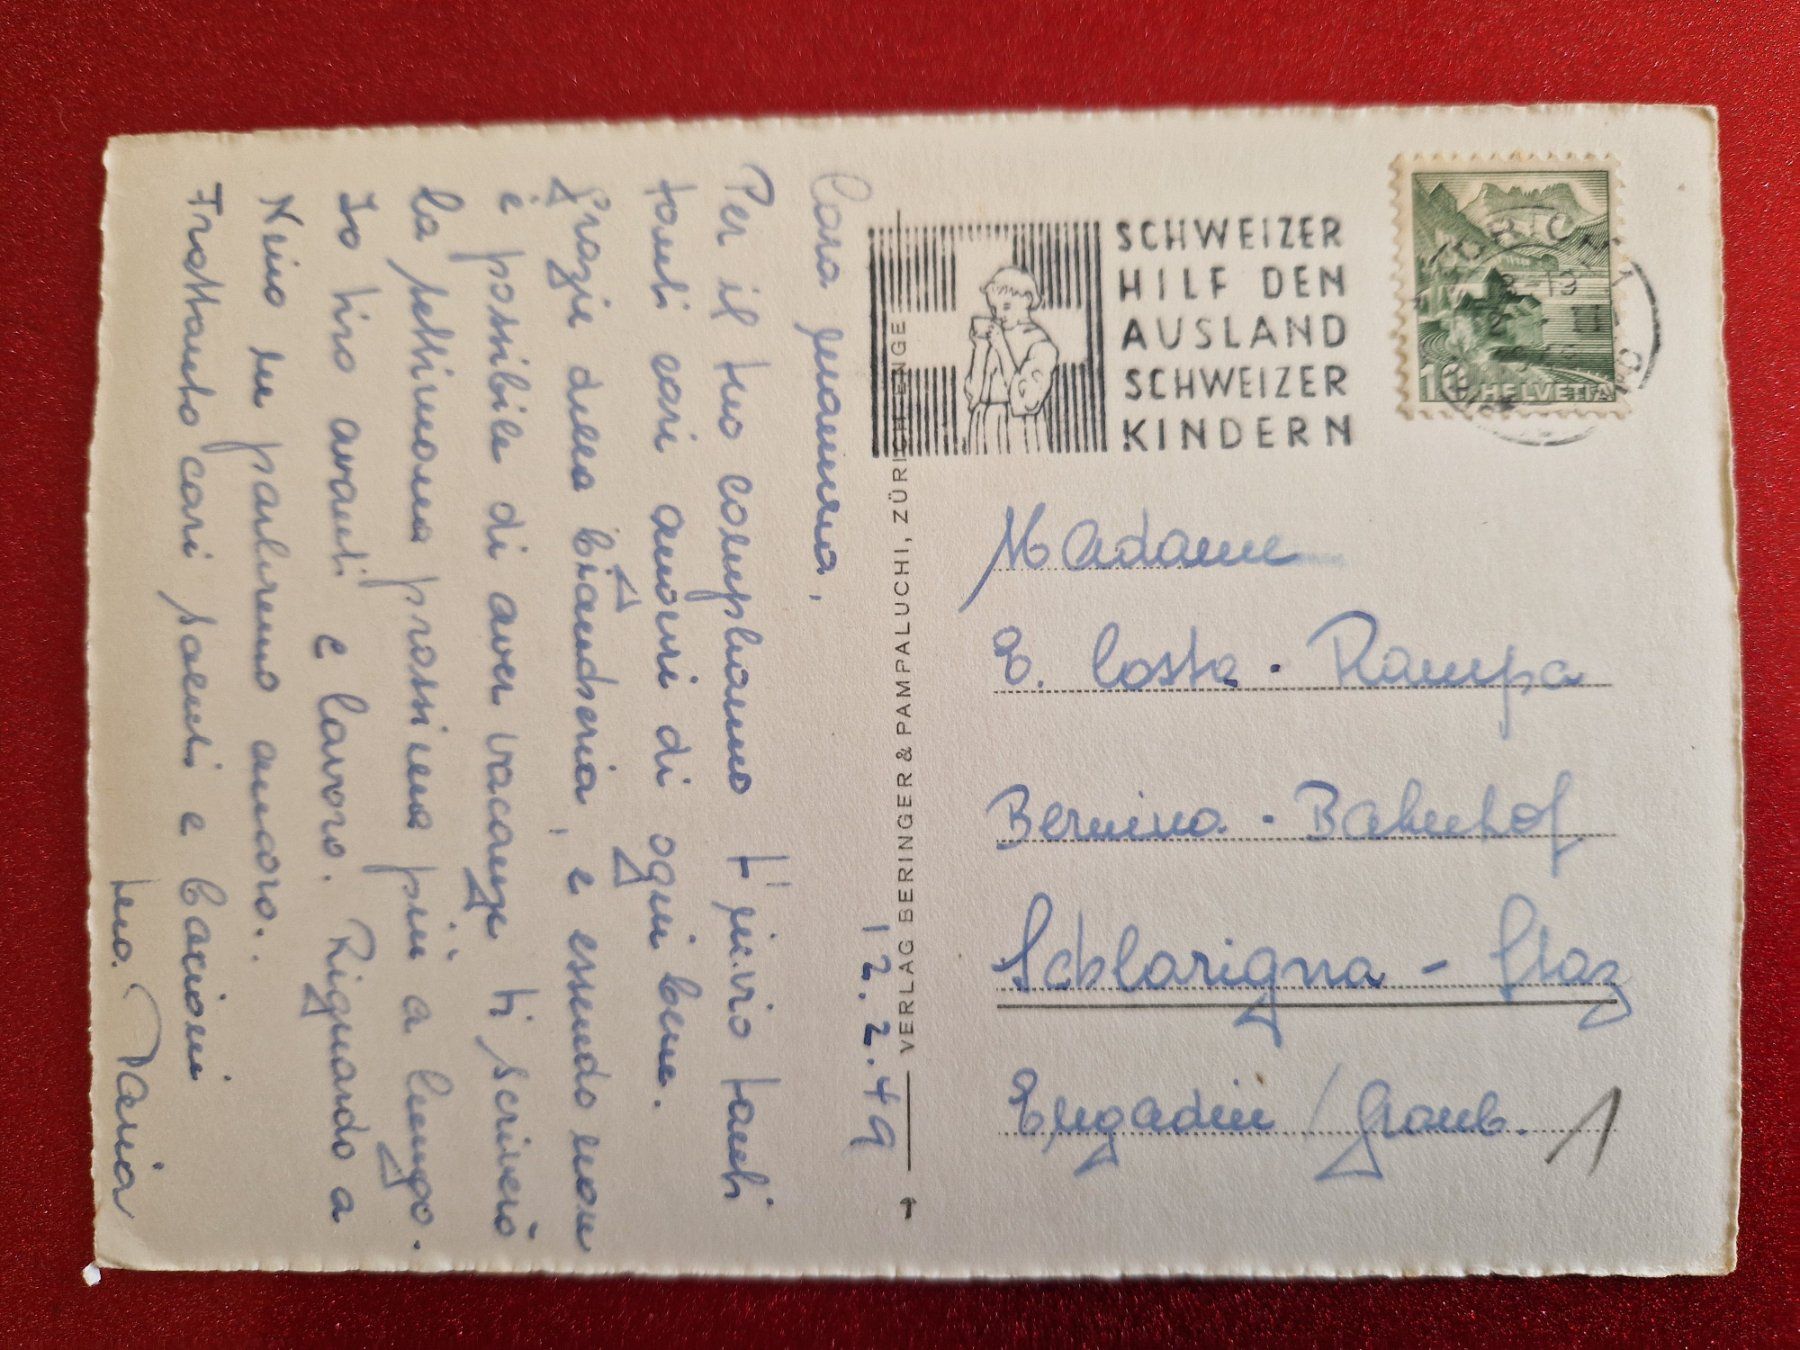 Cara mamma,
Per il tuo compleanno t'invio tanti
tanti cari auguri di ogni bene.
Grazie della biancheria, e essendo non
è possibile di aver vacanze ti scriverò
la settimana prossima più a lungo.
Io tiro avanti e lavoro. Riguardo a
Nino ne parleremo ancora.
Frattanto cari saluti e bacioni
tuo.
12.2.49
VERLAG BERINGER & PAMPALUCHI, ZÜRICH-ENGE
SCHWEIZER
HILF DEN
AUSLAND
SCHWEIZER
KINDERN
10 HELVETIA
Madame
E. Costa-Rampa
Bernina-Bahnhof
Schlarigna - Staz
Engadin / Graub.
1